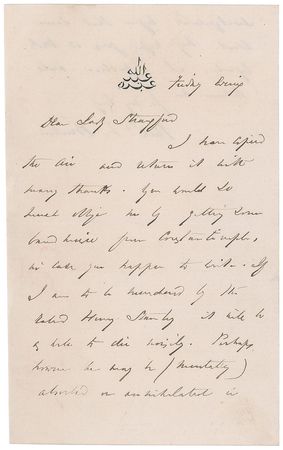 Friday Evening
Dear Lady Strangford
I have copied
the air and return it with
many thanks. You would so
much oblige me by getting some
band music from Constantinople,
in case you happen to write. If
I am to be murdered by the
Henry Stanley it will be
as well to die noisily. Perhaps
however he may be (mentally)
absorbed or annihilated in